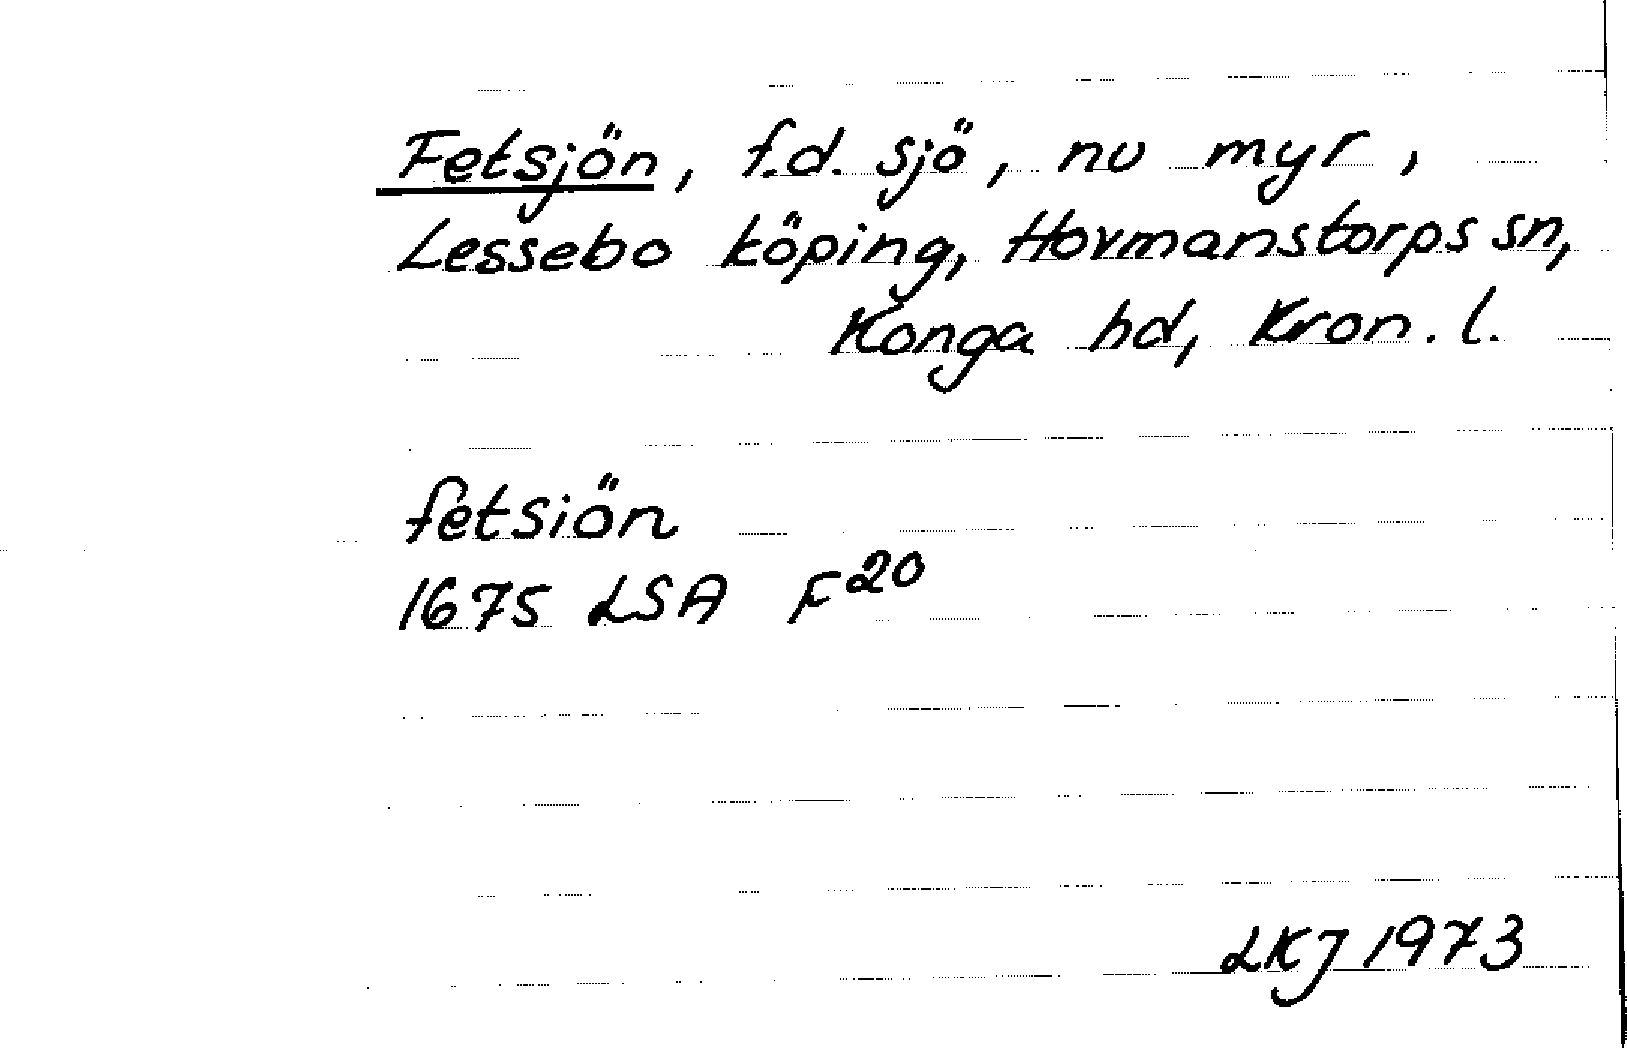 Fetsjön, f.d. sjö, nu myr,
Lessebo köping, Hovmanstorps sn,
Konga hd, Kron. l.
fetsiön
1675 LSA F20
LKJ 1973